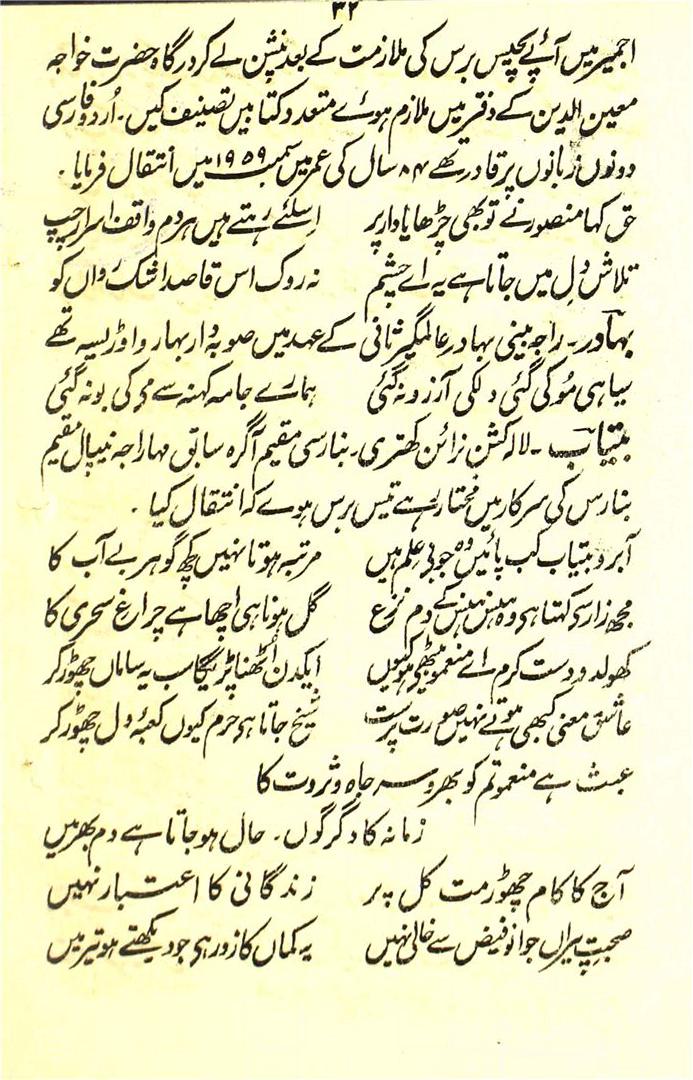 ۳۲
اجمیر میں آئے پچیس برس کی ملازمت کے بعد پنشن لے کر درگاہ حضرت خواجہ
معین الدین کے دفتر میں ملازم ہوئے متعدد کتابیں تصنیف کیں۔ اُردو فارسی
دونوں زبانوں پر قادر تھے ۸۴ سال کی عمر میں سمبت ۱۹۵۹ میں انتقال فرمایا۔
حق کہا منصور نے تو بھی چڑھایا دار پر اسلئے رہتے ہیں ہر دم واقف اسرار چپ
تلاش دل میں جاتا ہے یہ اے چشم نہ روک اس قاصد اشک رواں کو
بہادر۔ راجہ بینی بہادر عالمگیر ثانی کے عہد میں صوبہ دار بہار و اوڑیسہ تھے
سیاہی مُو کی گئی دلکی آرزو نہ گئی ہمارے جامہ کہنہ سے مے کی بو نہ گئی
بیتاب۔ لالہ کشن نرائن کھتری۔ بنارسی مقیم آگرہ سابق مہاراجہ نیپال مقیم
بنارس کی سرکار میں مختار رہے تیس برس ہوے کہ انتقال کیا۔
آبرو بیتاب کب پائیں وہ جو بے علم ہیں مرتبہ ہوتا نہیں کچھ گوہر بے آب کا
مجھ زار سی کہتا ہی وہ ہنس ہنس کے دم نزع گل ہونا ہی اچھا ہے چراغ سحری کا
کھولدو دست کرم اے منعمو بیٹھے ہو کیوں ایکدن اُٹھنا پڑیگا سب یہ ساماں چھوڑ کر
عاشق معنی کبھی ہوتے نہیں صورت پرست شیخ جاتا ہی حرم کیوں کعبۂ دل چھوڑ کر
عبث ہے منعمو تم کو بھروسہ جاہ و ثروت کا
زمانہ کا دگرگوں۔ حال ہو جاتا ہے دم بھر میں
آج کا کام چھوڑ مت کل پر زندگانی کا اعتبار نہیں
صحبت پیراں جوانو فیض سے خالی نہیں یہ کماں کا زور ہی جو دیکھتے ہو تیر میں